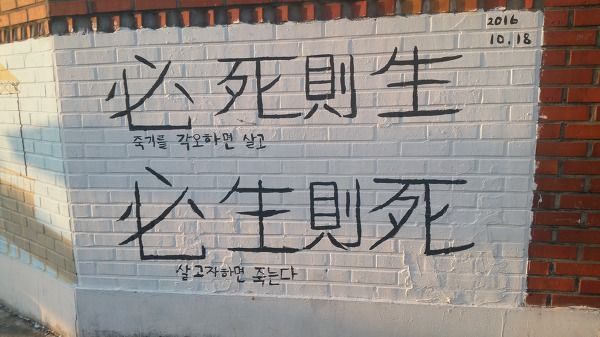 2016
10.18
必死則生
죽기를 각오하면 살고
必生則死
살고자하면 죽는다